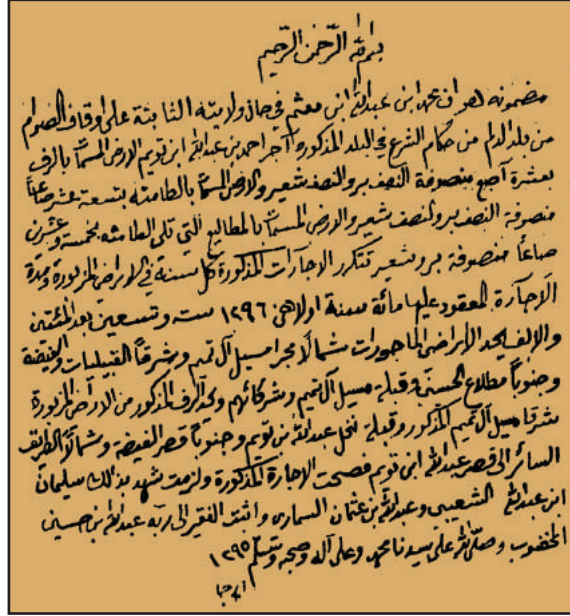 بسم الله الرحمن الرحيم
مضمونه هو ان محمد ابن عبدالله ابن معثم في حال ولايته الثابتة على اوقاف الصوام
من بلد الدلم من حكام الشرع في البلد المذكوره آجر احمد بن عبدالله ابن تويم الارض المسمات بالرف
بعشرة آصع منصوفة النصف بر والنصف شعير والارض المسمات بالطامنه بتسعة عشر صاعاً
منصوفة النصف بر والنصف شعير والارض المسمات بالمطاليع التي تلي الطامنه بخمسة وعشرين
صاعاً منصوفة بر وشعير تتكرر الاجارات المذكورة كل سنة في الاراضي المزبورة ومدة
الاجارة المعقود عليها مائة سنة اولاهن ١٢٩٦ ست وتسعين بعد المئتين
والالف يحد الأراضي الماجورات شمالا مجرا مسيل آل تميم وشرقاً القبيليات والغيضة
وجنوباً مطلاع الحسيني وقبلة مسيل آل تميم وشركائهم ويحد الرف المذكور من الاراض المزبورة
شرقا مسيل آل تميم المذكور وقبلة نخل عبدالله بن تويم وجنوباً قصر الغيضة وشمالاً الطريق
السائر الى قصر عبدالله ابن تويم فصحت الاجارة المذكورة ولزمت شهد بذلك سليمان
ابن عبدالله الشعيبي وعبدالله بن عثمان السماري واثبته الفقير الى ربه عبدالله بن حسين
المخضوب وصلى الله على سيدنا محمد وعلى آله وصحبه وسلم ١٢٩٥